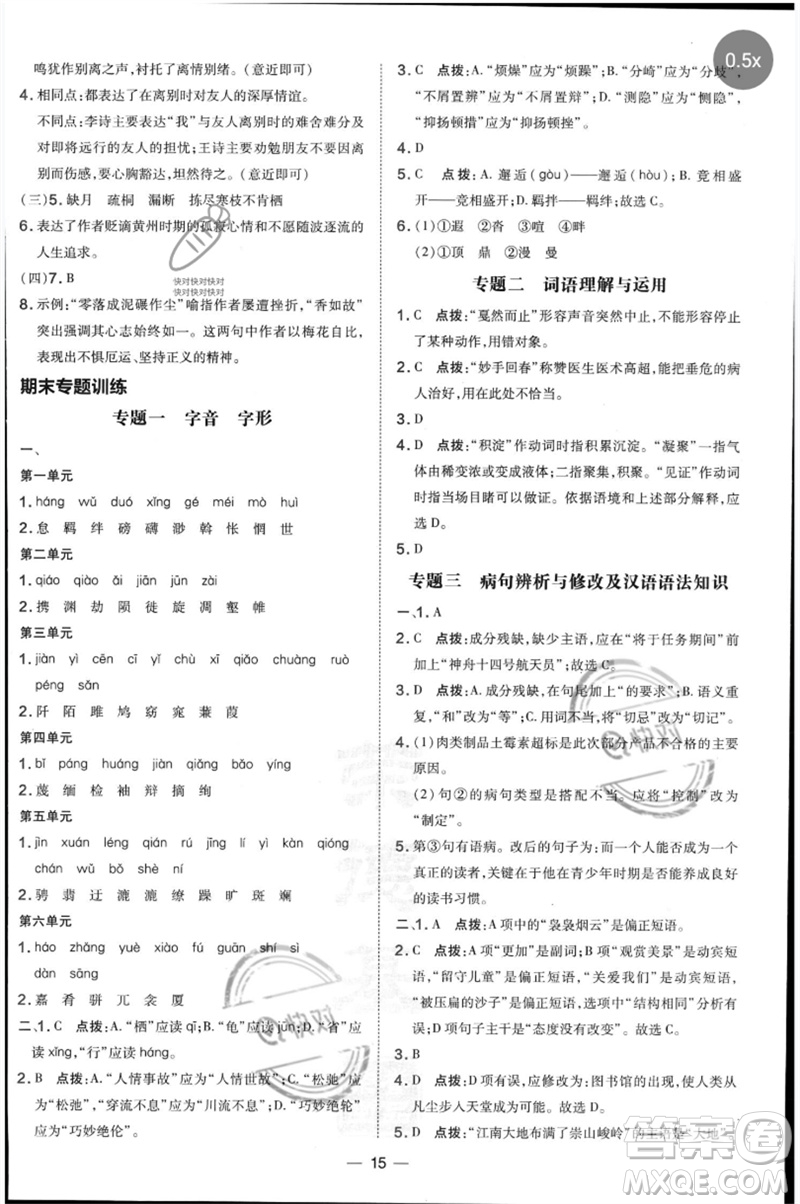 0.5x
鸣犹作别离之声，衬托了离情别绪。（意近即可）
4. 相同点：都表达了在离别时对友人的深厚情谊。
不同点：李诗主要表达“我”与友人离别时的难舍难分以及对即将远行的友人的深切关怀；王诗主要劝勉朋友不要因离别而伤感，心胸豁达，坦然待之。（意近即可）
（三）5. 缺月 疏桐 漏断 拣尽寒枝不肯栖
6. 表达了作者贬谪黄州时期的孤寂心情和不愿随波逐流的
人生追求。
（四）7. B
快对快对快对
快对快对快对
8. 示例：“零落成泥碾作尘”喻指作者屡遭挫折，“香如故”
突出强调其心志始终如一。这两句中作者以梅花自比，
表现出不惧厄运、坚持正义的精神。
期末专题训练
专题一 字音 字形
一、
第一单元
1. háng wǔ duó xīng gé méi mò huì
2. 怠 羁 绊 磅 礴 渺 斡 怅 惘 世
第二单元
1. qiáo qiào āi āi jiāng jiǎn
2. 携 渊 劫 陨 徙 旋 凋 壑 帷
第三单元
1. jiàn yì cēn cī yǐ chù cuàn guànɡ ruò
péng sǎn
2. 阡 陌 雎 鸠 窈 窕 蒹 葭
第四单元
1. bǐ páng huáng jiàn qiǎng yí
2. 蔑 缅 检 袖 辩 摘 绚
第五单元
1. jìn xuán léng qián rán yì kàn qióng
chán wǔ bǒ shè ní
2. 骋 翡 迂 漉 漉 缭 躁 旷 斑 斓
第六单元
1. háo zhǎng yuè xiào fú guān shí sì
dàn sāng
2. 嘉 肴 骈 兀 衾 厦
二、1. C 点拨：A.“栖”应读 qī；B.“龟”应读 jūn；D.“省”应
读 xǐng，“行”应读 háng。
2. B 点拨：A.“人情事故”应为“人情世故”；C.“松驰”应
为“松弛”，“穿流不息”应为“川流不息”；D.“巧妙绝轮”
应为“巧妙绝伦”。
3. C 点拨：A.“烦燥”应为“烦躁”；B.“分崎”应为“分歧”，
“不屑置辨”应为“不屑置辩”；D.“测隐”应为“恻隐”，
“抑扬顿措”应为“抑扬顿挫”。
4. D
5. C 点拨：A. 邂逅（gòu）——邂逅（hòu）；B. 竞相盛
开——竞相盛开；D. 羁拌——羁绊。故选 C。
6. （1）①遐 ②沓 ③喧 ④畔
（2）①顶 鼎 ②漫 曼
专题二 词语理解与运用
1. C 点拨：“戛然而止”形容声音突然中止，不能形容停止
了某种动作，用错对象。
2. C 点拨：“妙手回春”称赞医生医术高超，能使垂危的病
人治好，用在此处不恰当。
3. D
4. D 点拨：“积淀”作动词时指积累沉淀。“凝聚”一指气
体由稀变浓或变成液体；二指聚集，积聚。“见证”作动词
时指当场目睹可以作证。依据语境和以上部分解释，应
选 D。
5. D
专题三 病句辨析与修改及汉语语法知识
一、1. A
2. C 点拨：成分残缺，缺少主语，在“将于任务期间”前
加上“神舟十四号航天员”；故选 C。
3. D 点拨：A. 成分残缺，在句尾加上“的要求”；B. 语义重
复，“和”改为“等”；C. 用词不当，将“切忌”改为“切记”。
4. （1）肉类制品土霉素超标是此次部分产品不合格的主要
原因。
（2）句②的病句类型是搭配不当。应将“控制”改为
“制定”。
5. 第③句有语病。改后的句子为：而一个人能否成为一个
真正的读者，关键在于在青少年时期是否能够养成良好
的读书习惯。
二、1. A 点拨：A 项中的“袅袅烟云”是偏正短语。
2. C 点拨：A 项“更加”是副词；B 项“观赏美景”是动宾短
语，“留守儿童”是偏正短语，“关爱生命”是动宾短语，
“被压扁的沙子”是偏正短语，“结构相同”说法有误；
D 项句子主干是“态度没有改变”。故选 C。
3. B
4. C 点拨：C 项有误，应修改为：图书馆的出现，使人类从
凡尘步入天堂成为可能。故选 C。
5. D 点拨：“江南大地布满了崇山峻岭”的主语是“大地”，
15
快对
快对
答案圈
MXQE.COM